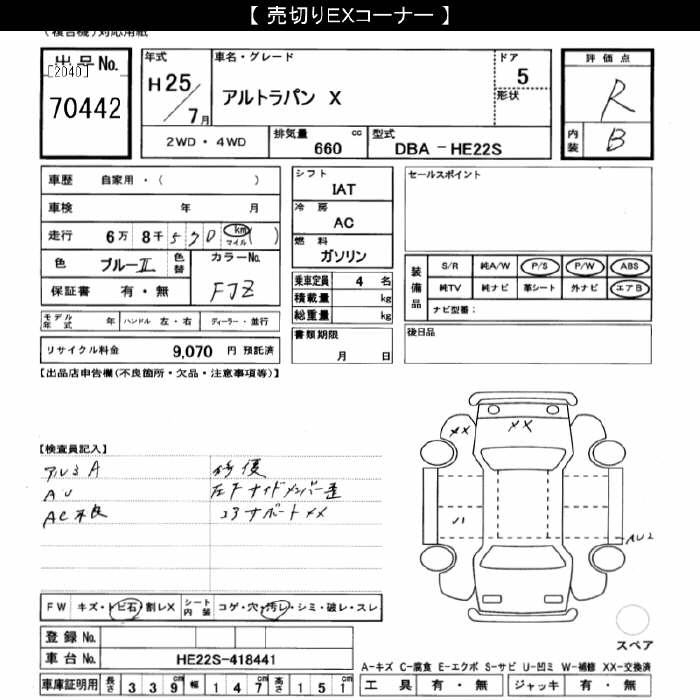 【 売切りEXコーナー 】
(複合機)対応用紙
出品No.
[2040]
70442
年式
H25/7月
車名・グレード
アルトラパン X
ドア
5
形状
評価点
R
内装
B
2WD・4WD
排気量 cc
660
型式
DBA-HE22S
車歴 自家用・( )
車検 年 月
走行 6万 8千 570 km マイル ( )
色 ブルーⅡ 色替 カラーNo.
FJZ
保証書 有・無
モデル年式 年 ハンドル 左・右 ディーラー・並行
リサイクル料金 9,070 円 預託済
シフト
IAT
冷房
AC
燃料
ガソリン
乗車定員 4 名
積載量 kg
総重量 kg
書類期限
月 日
セールスポイント
装備品
S/R 純A/W P/S P/W ABS
純TV 純ナビ 革シート 外ナビ エアB
ナビ型番:
後日品
【出品店申告欄(不良箇所・欠品・注意事項等)】
【検査員記入】
アルミA
AU
AC不良
修復
左フサイドメンバー歪
コアサポートXX
XX
XX
AU2
FW キズ・トビ石・割レX シート内装 コゲ・穴・汚レ・シミ・破レ・スレ
登録No.
車台No. HE22S-418441
車庫証明用 長さ 339cm 幅 147cm 高さ 151cm
スペア
A-キズ C-腐食 E-エクボ S-サビ U-凹ミ W-補修 XX-交換済
工具 有・無 ジャッキ 有・無